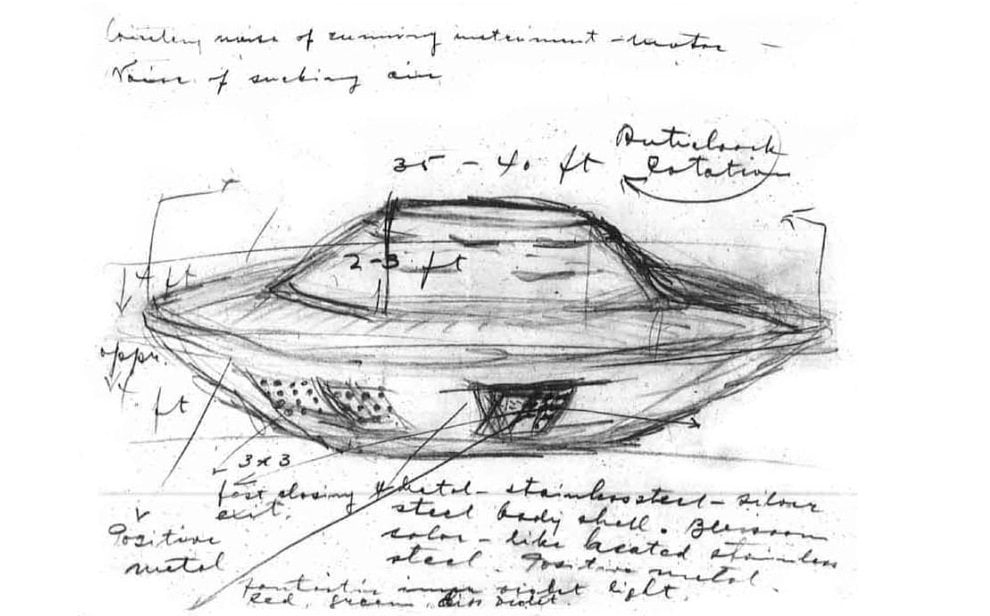 noise of running instrument - motor -
Noise of sucking air
Anticlock
35 - 40 ft
Rotation
2-3 ft
4 ft
appr.
4 ft
3x3
fast closing & Metal - stainless steel - silver
exit.
steel body shell.
Positive
color - like heated stainless
metal
steel. Positive metal.
fantastic light.
Red, green, violet.